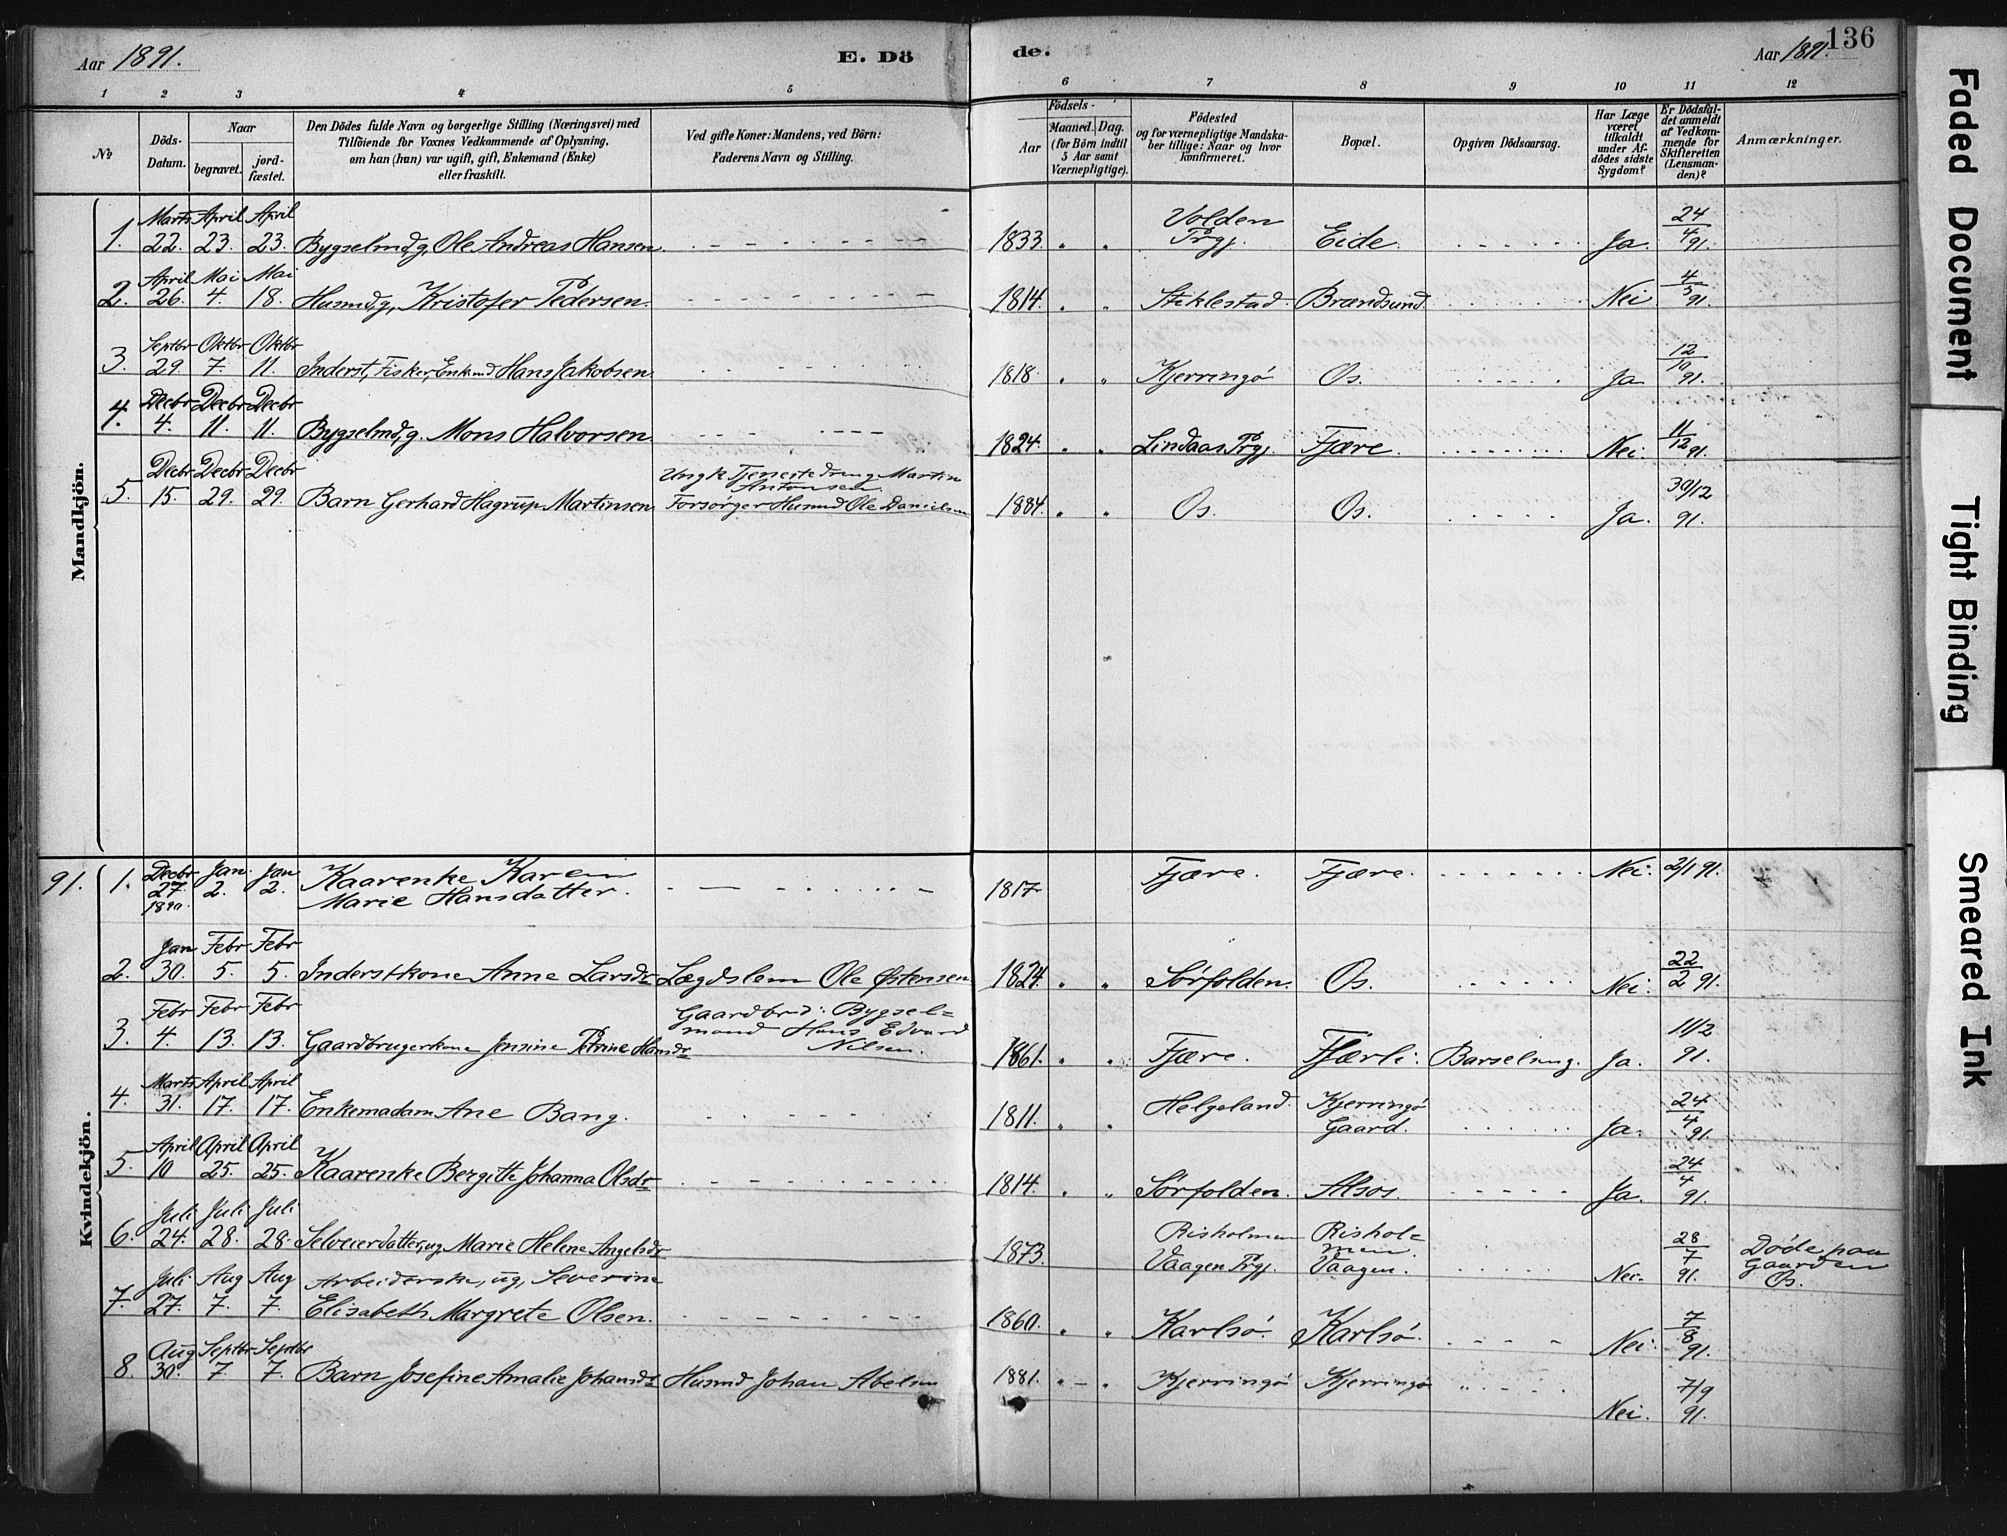 Aar 1891.
E. Döde.
Aar 1891.
136
1 2 3 4 5 6 7 8 9 10 11 12
№
Döds-Datum.
Naar
begravet.
jordfæstet.
Den Dödes fulde Navn og borgerlige Stilling (Næringsvei) med
Tilföiende for Voxnes Vedkommende af Oplysning,
om han (hun) var ugift, gift, Enkemand (Enke)
eller fraskilt.
Ved gifte Koner: Mandens, ved Börn:
Faderens Navn og Stilling.
Födsels-
Aar
Maaned. Dag.
(for Börn indtil
5 Aar samt
Værnepligtige).
Födested
og for værnepligtige Mandska-
ber tillige: Naar og hvor
konfirmeret.
Bopæl.
Opgiven Dödsaarsag.
Har Læge
været
tilkaldt
under Af-
dödes sidste
Sygdom?
Er Dödsfal-
det anmeldt
af Vedkom-
mende for
Skifteretten
(Lensman-
den)?
Anmærkninger.
Mandkjön.
1. Marts 22. April 23. April 23. Bygselmd, g, Ole Andreas Hansen 1833. Volden Prgj. Eide. Ja. 24/4 91.
2. April 26. Mai 4. Mai 18. Husmd, g, Kristofer Pedersen. 1814. Stiklestad. Brændsund. Nei. 4/5 91.
3. Septbr 29. Oktbr 7. Oktbr 11. Inderst, Fisker, Enkmd Hans Jakobsen 1818. Kjerringö Os. Ja. 12/10 91.
4. Decbr 4. Decbr 11. Decbr 11. Bygselmd, g. Mons Halvorsen 1824. Lindaas Prgj. Fjære. Nei. 11/12 91.
5. Decbr 15. Decbr 29. Decbr 29. Barn Gerhard Hagrup Martinsen Ungk. Tjenestedreng Martin Antonsen Forsörger Husmd Ole Danielsen 1884. Os. Os. Ja. 30/12 91.
Kvindekjön.
91. 1. Decbr 27. 1890. Jan. 2. Jan 2. Kaarenke Karen Marie Hansdatter. 1817 Fjære. Fjære. Nei. 2/1 91.
2. Jan 30. Febr 5. Febr 5. Inderstkone Anne Larsdr Lægdslem Ole Östensen 1824. Sörfolden. Os. Nei. 22/2 91.
3. Febr 4. Febr 13. Febr 13. Gaardbrugerkone Jensine Petrine Hansdr Gaardbrd: Bygsel=mand Hans Edvard Nilsen. 1861. Fjære. Fjærli. Barselseng. Ja. 11/2 91.
4. Marts 31. April 17. April 17. Enkemadam Ane Bang. 1811. Helgeland. Kjerringö Gaard. Ja. 24/4 91.
5. April 10 April 25. April 25. Kaarenke Bergitte Johanna Olsdr 1814. Sörfolden. Alsos. Ja. 24/4 91.
6. Juli 24. Juli 28. Juli 28. Selveierdatter, ug Marie Helene Angelsdr 1873. Risholmen Vaagen Prgj. Rishol=men. Vaagen. Nei. 28/7 91. Döde paa Gaarden Os.
7. Juli 27. Aug 7. Aug 7. Arbeiderske, ug, Severine Elisabeth Margrete Olsen. 1860. Karlsö. Karlsö. Nei. 7/8 91.
8. Aug 30. Septbr 7. Septbr 7. Barn Josefine Amalie Johansdr Husmd Johan Abelsen 1881. Kjerringö Kjerringö Nei. 7/9 91.
Faded Document
Tight Binding
Smeared Ink